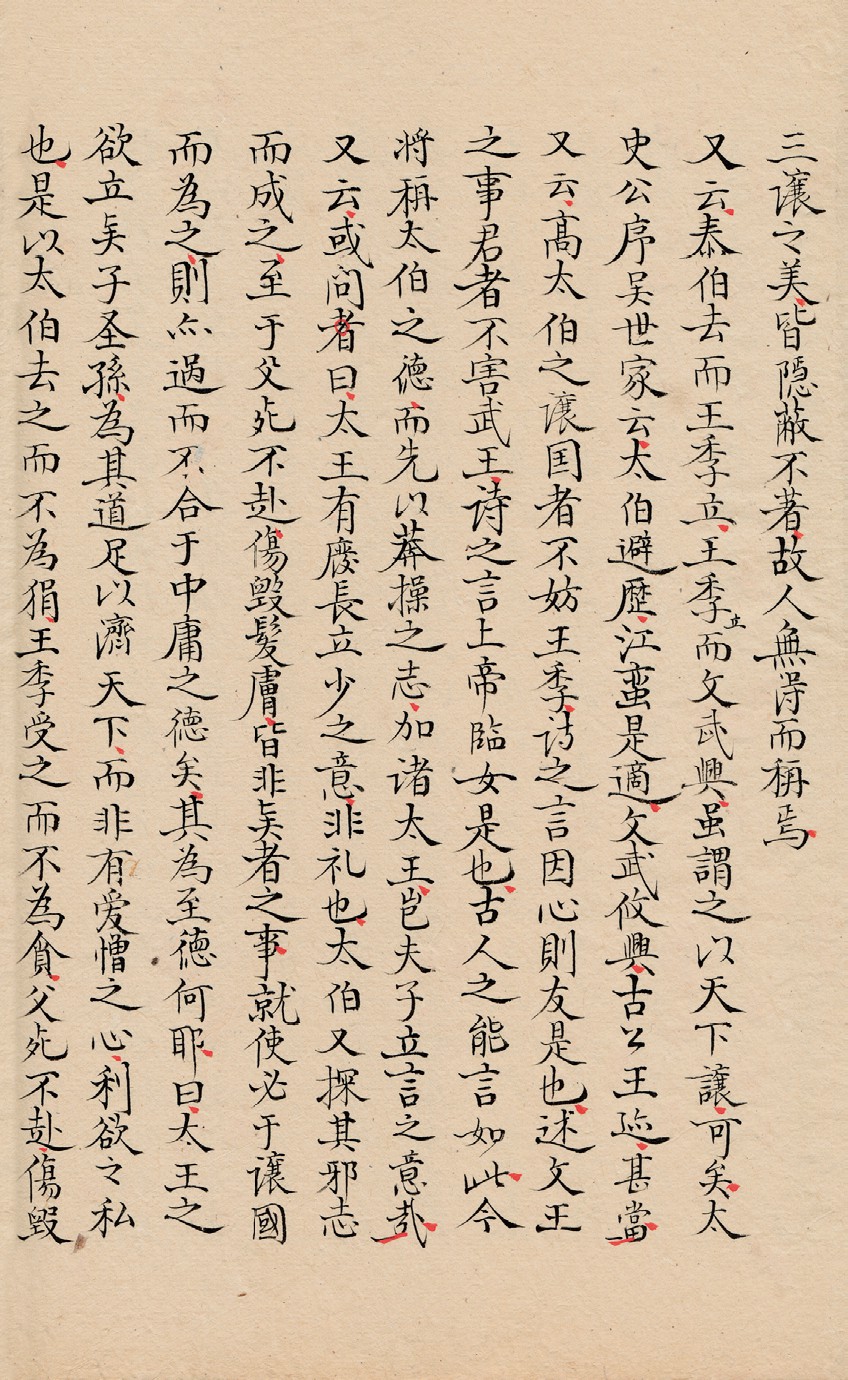 三讓之美皆隠蔽不著故人無淂而稱焉
又云泰伯去而王季立王季立而文武興虽謂之以天下讓可矣太
史公序吴世家云太伯避歷江蛮是適文武攸興古公王迹甚當
又云髙太伯之讓囯者不妨王季诗之言因心則友是也述文王
之事君者不害武王诗之言上帝臨女是也古人之能言如此今
将稱太伯之德而先以莽操之志加诸太王岂夫子立言之意哉
又云或问者曰太王有废長立少之意非礼也太伯又探其邪志
而成之至于父死不赴傷毁髪膚皆非矣者之事就使必于讓國
而為之則亦過而不合于中庸之德矣其為至德何耶曰太王之
欲立矣子圣孫為其道足以濟天下而非有爱憎之心利欲之私
也是以太伯去之而不為狷王季受之而不為貪父死不赴傷毁